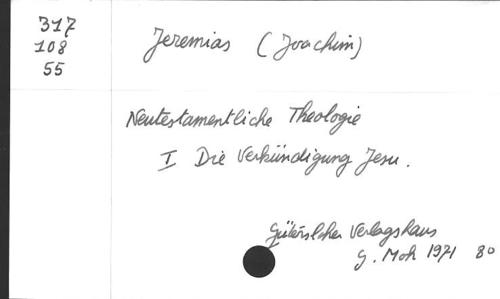 317
108
55
Jeremias (Joachim)
Neutestamentliche Theologie
I Die Verkündigung Jesu.
Gütersloher Verlagshaus
G. Moh 1971 80